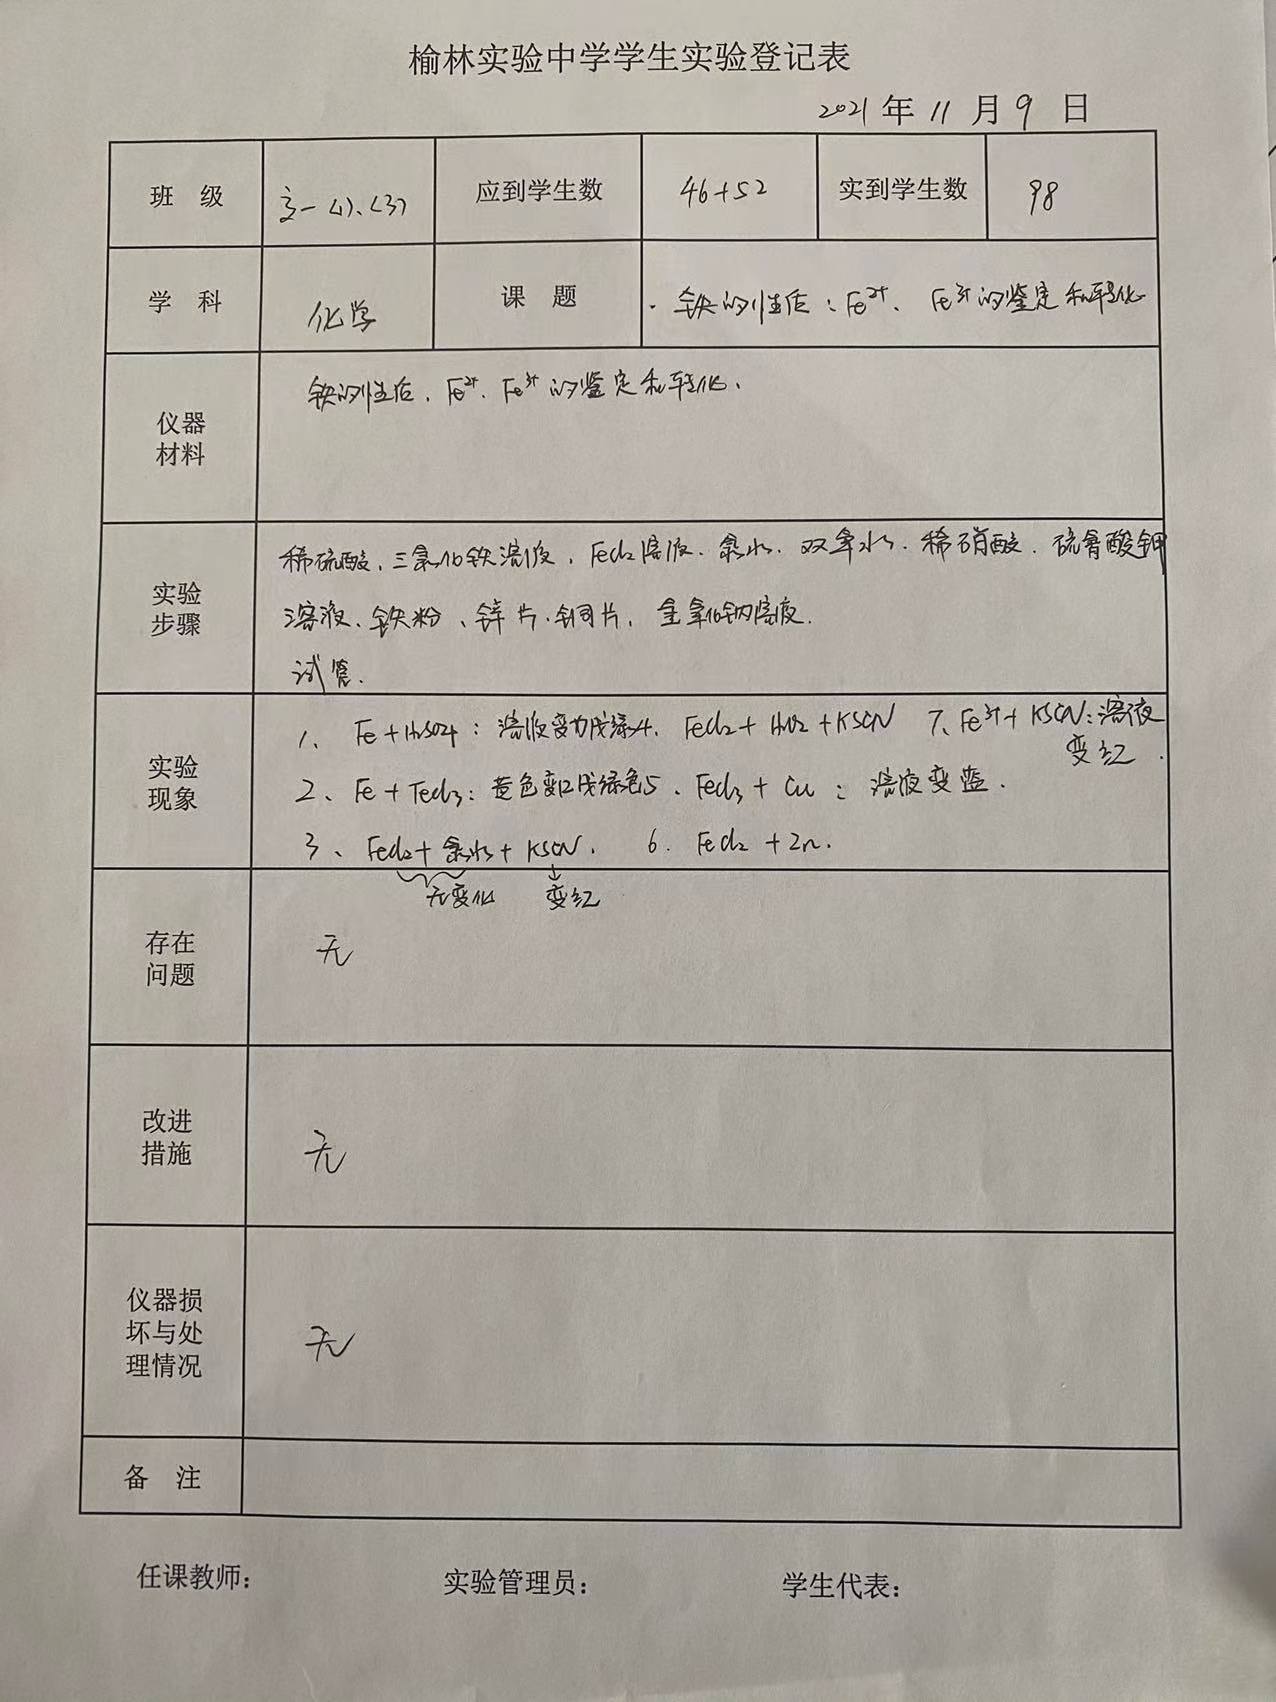 榆林实验中学学生实验登记表
2021年11月9日
班 级 高一(1)、(3) 应到学生数 46+52 实到学生数 98
学 科 化学 课 题 铁的性质：Fe²⁺、Fe³⁺的鉴定和转化
仪器材料 铁的性质、Fe²⁺、Fe³⁺的鉴定和转化、
实验步骤 稀硫酸、三氯化铁溶液、FeCl2溶液、氯水、双氧水、稀硝酸、硫氰酸钾
溶液、铁粉、锌片、铜片、氢氧化钠溶液.
试管.
实验现象 1、Fe+H2SO4：溶液变为浅绿 4、FeCl2+H2O2+KSCN 7、Fe³⁺+KSCN：溶液
变红.
2、Fe+FeCl3：黄色变为浅绿色 5、FeCl3+Cu：溶液变蓝.
3、FeCl2+氯水+KSCN. 6. FeCl2+Zn.
无变化 变红
存在问题 无
改进措施 无
仪器损坏与处理情况 无
备 注
任课教师： 实验管理员： 学生代表：